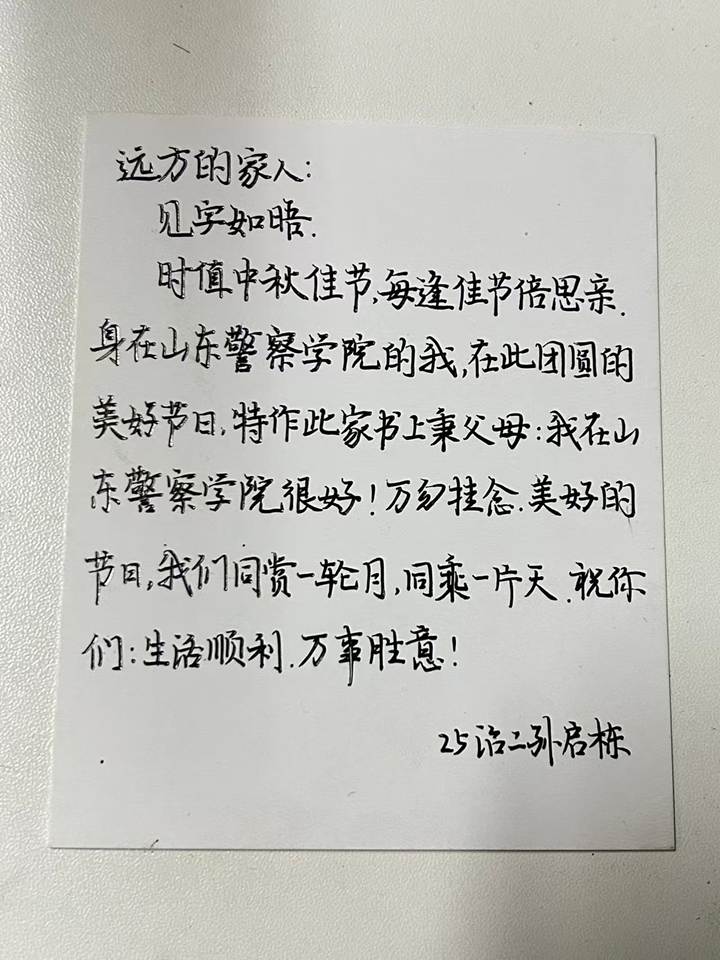 远方的家人:
见字如晤.
时值中秋佳节,每逢佳节倍思亲.
身在山东警察学院的我,在此团圆的
美好节日,特作此家书上秉父母:我在山
东警察学院很好!万勿挂念.美好的
节日,我们同赏一轮月,同乘一片天.祝你
们:生活顺利.万事胜意!
25治二孙启栋